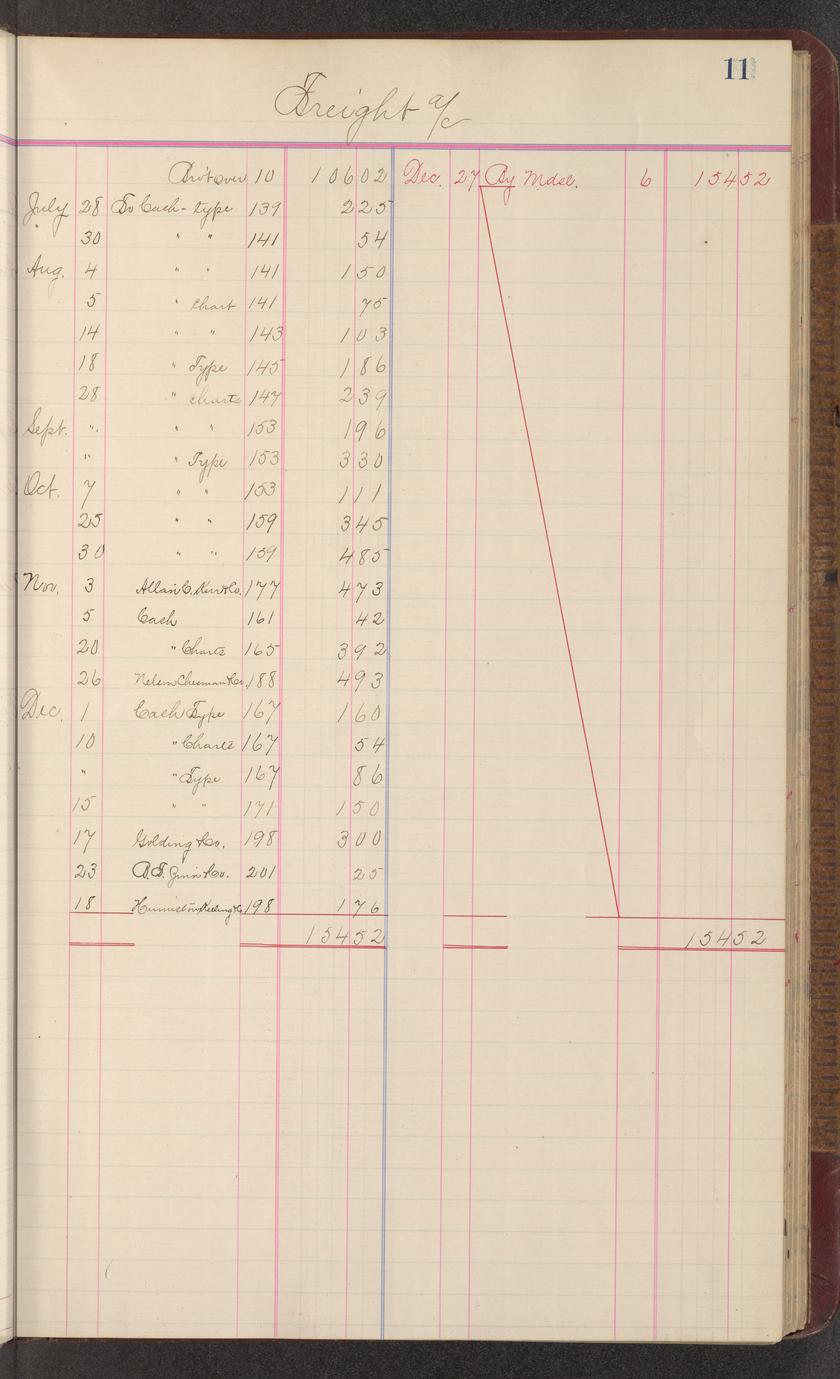 11
Freight a/c
Bro't over 10 106 02 Dec. 27 By Mdse. 6 154 52
July 28 To Cash - type 139 2 25
" 30 " " 141 54
Aug. 4 " " 141 1 50
5 " Chart 141 75
14 " " 143 1 03
18 " Type 145 1 86
28 " Charts 147 2 39
Sept. " " " 153 1 96
" " Type 153 3 30
Oct. 7 " " 153 1 11
25 " " 159 3 45
30 " " 159 4 85
Nov. 3 Allan C. Kerr & Co. 177 4 73
5 Cash 161 42
20 " Charts 165 3 92
26 Nelson Chesman & Co. 188 4 93
Dec. 1 Cash Type 167 1 60
10 " Charts 167 54
" " Type 167 86
15 " " 171 1 50
17 Golding & Co. 198 3 00
23 Co. 201 25
18 Keeling & Co 198 1 76
154 52 154 52